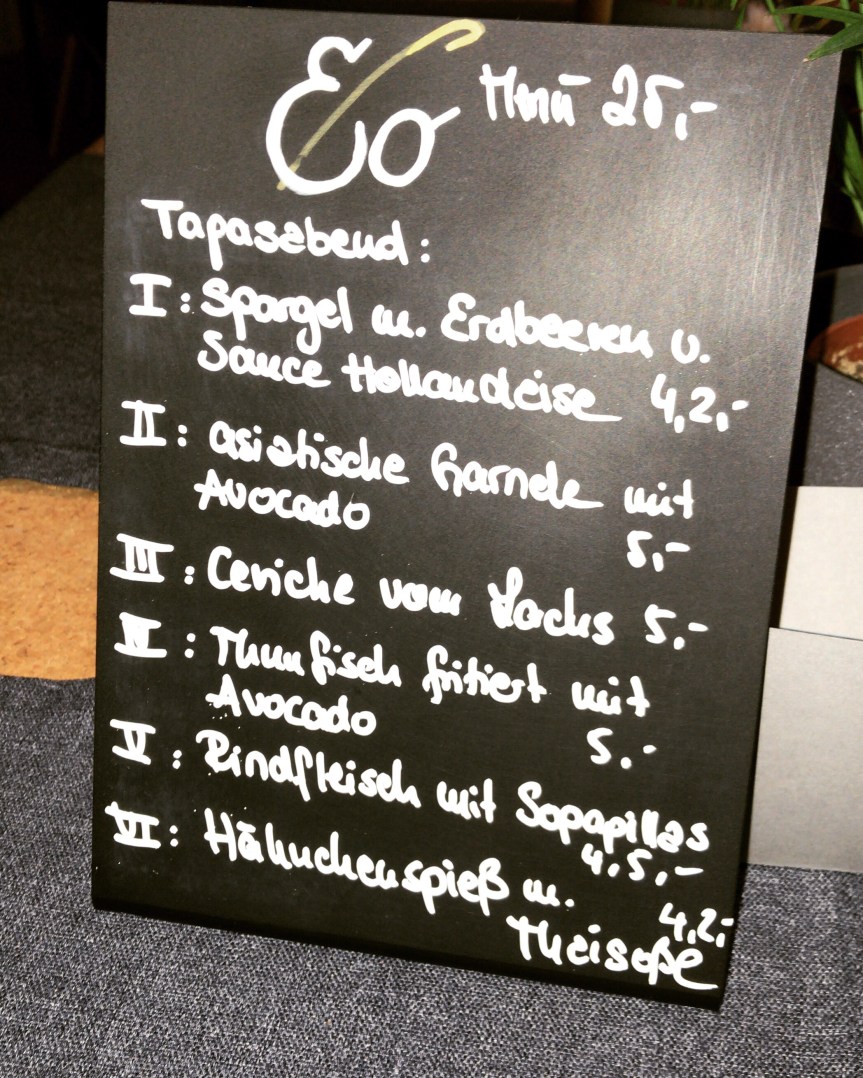 Eo Menü 25,-
Tapasabend:
I: Spargel m. Erdbeeren u.
Sauce Hollandeise 4,2,-
II: asiatische Garnele mit
Avocado 5,-
III: Ceviche vom Lachs 5,-
IV: Thunfisch fritiert mit
Avocado 5,-
V: Rindfleisch mit Sopapillas
4,5,-
VI: Hähnchenspieß m.
4,2,-
Theisoße